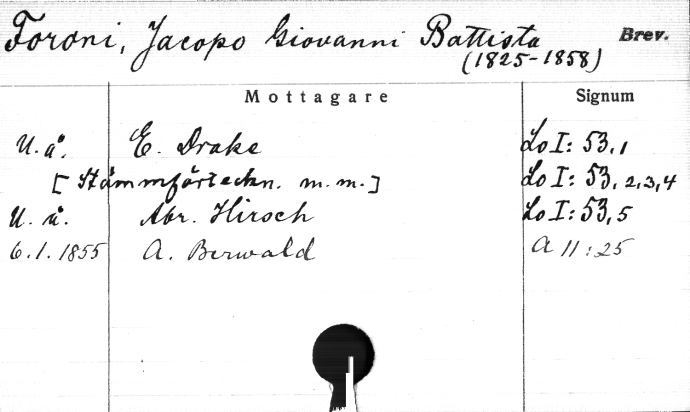 Foroni, Jacopo Giovanni Battista Brev.
(1825-1858)
Mottagare Signum
U.å. E. Drake Lo I: 53,1
[Stämmförteckn. m.m.] Lo I: 53,2,3,4
U.å. Abr. Hirsch Lo I: 53,5
6.1.1855 A. Berwald A 11:25